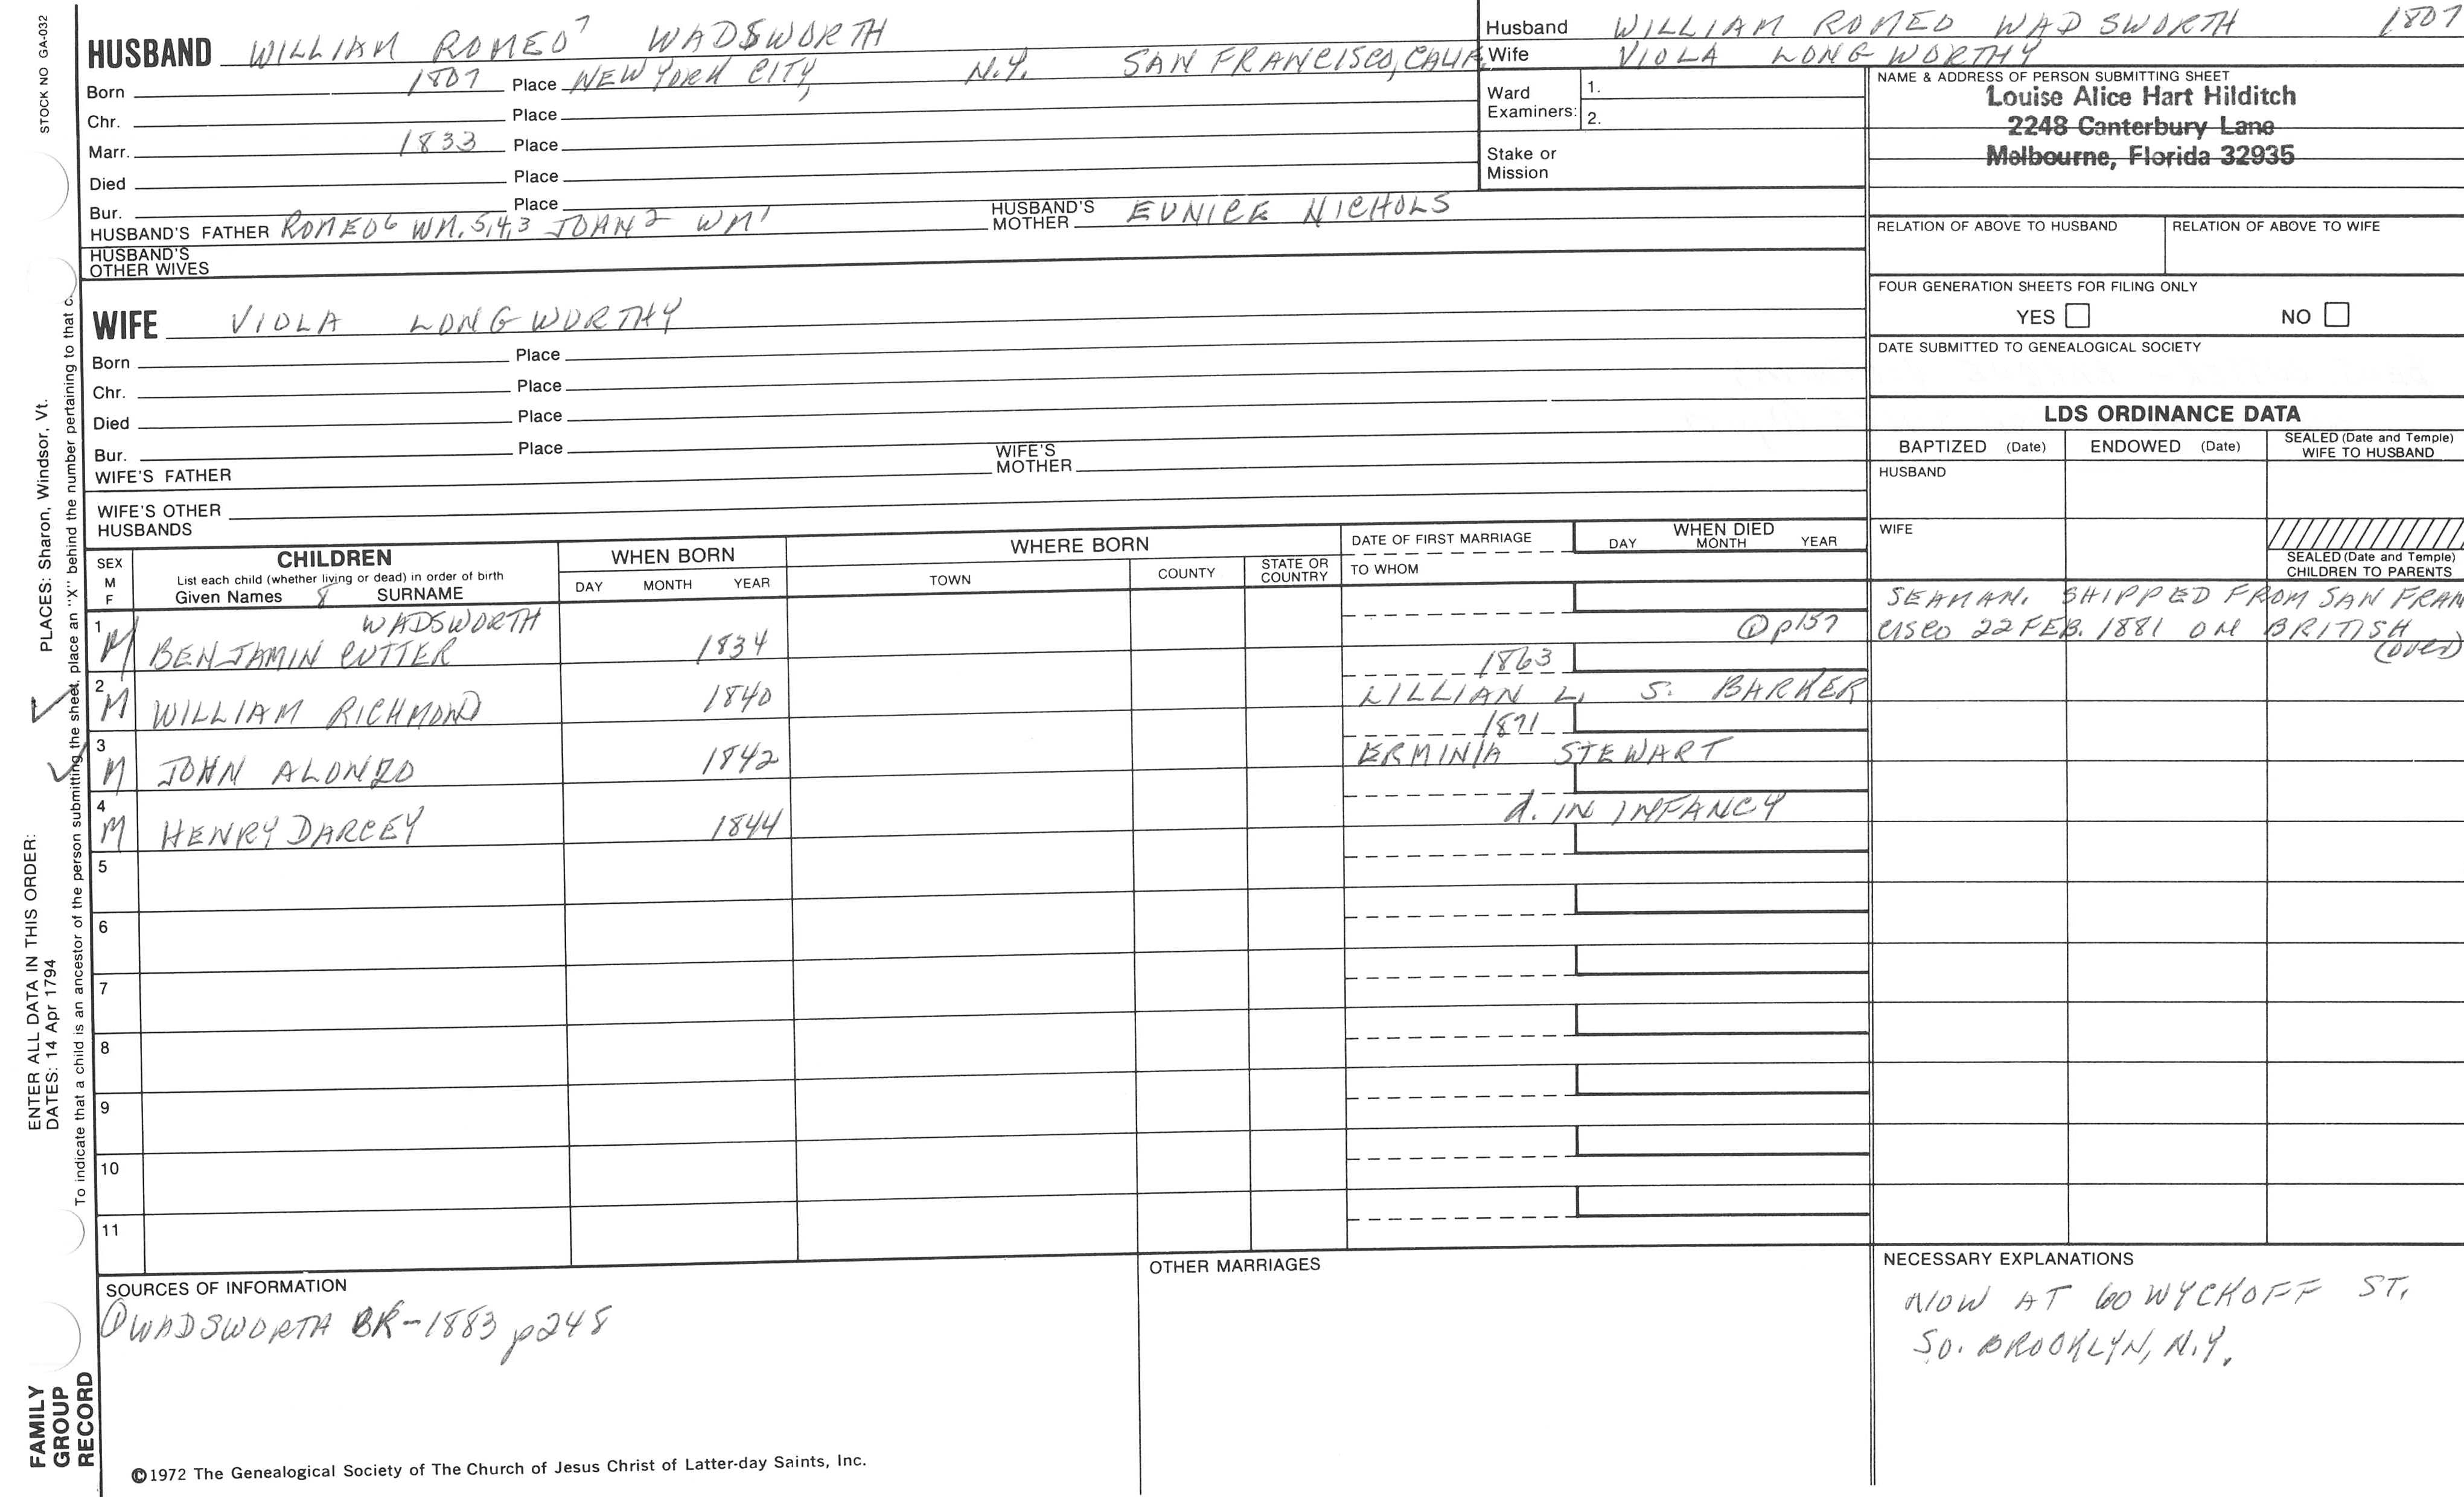 STOCK NO GA-032
HUSBAND WILLIAM ROMEO 7 WADSWORTH
Born 1807 Place NEW YORK CITY, N.Y. SAN FRANCISCO, CALIF.
Chr. Place
Marr. 1833 Place
Died Place
Bur. Place
HUSBAND'S FATHER ROMEO 6 WM. 5,4,3 JOHN 2 WM 1 HUSBAND'S MOTHER EUNICE NICHOLS
HUSBAND'S OTHER WIVES
WIFE VIOLA LONGWORTHY
Born Place
Chr. Place
Died Place
Bur. Place
WIFE'S FATHER WIFE'S MOTHER
WIFE'S OTHER HUSBANDS
Husband WILLIAM ROMEO WADSWORTH 1807
Wife VIOLA LONGWORTHY
Ward Examiners: 1.
2.
Stake or Mission
NAME & ADDRESS OF PERSON SUBMITTING SHEET
Louise Alice Hart Hilditch
2248 Canterbury Lane
Melbourne, Florida 32935
RELATION OF ABOVE TO HUSBAND RELATION OF ABOVE TO WIFE
FOUR GENERATION SHEETS FOR FILING ONLY
YES NO
DATE SUBMITTED TO GENEALOGICAL SOCIETY
LDS ORDINANCE DATA
BAPTIZED (Date) ENDOWED (Date) SEALED (Date and Temple) WIFE TO HUSBAND
HUSBAND
WIFE
SEALED (Date and Temple) CHILDREN TO PARENTS
SEX M F
CHILDREN
List each child (whether living or dead) in order of birth
Given Names 8 SURNAME
WHEN BORN
DAY MONTH YEAR
WHERE BORN
TOWN COUNTY STATE OR COUNTRY
DATE OF FIRST MARRIAGE
TO WHOM
WHEN DIED
DAY MONTH YEAR
WADSWORTH
1 M BENJAMIN CUTTER 1834 ① p157
SEAMAN. SHIPPED FROM SAN FRAN
CISCO 22 FEB. 1881 ON BRITISH
(over)
2 M WILLIAM RICHMOND 1840 1863
LILLIAN L. S. BARKER
3 M JOHN ALONZO 1842 1871
ERMINIA STEWART
4 M HENRY DARCEY 1844 d. IN INFANCY
5
6
7
8
9
10
11
SOURCES OF INFORMATION
① WADSWORTH BK-1883 p248
OTHER MARRIAGES
NECESSARY EXPLANATIONS
NOW AT 60 WYCKOFF ST.
SO. BROOKLYN, N.Y.
©1972 The Genealogical Society of The Church of Jesus Christ of Latter-day Saints, Inc.
FAMILY GROUP RECORD
ENTER ALL DATA IN THIS ORDER:
DATES: 14 Apr 1794 PLACES: Sharon, Windsor, Vt.
To indicate that a child is an ancestor of the person submitting the sheet, place an "X" behind the number pertaining to that c